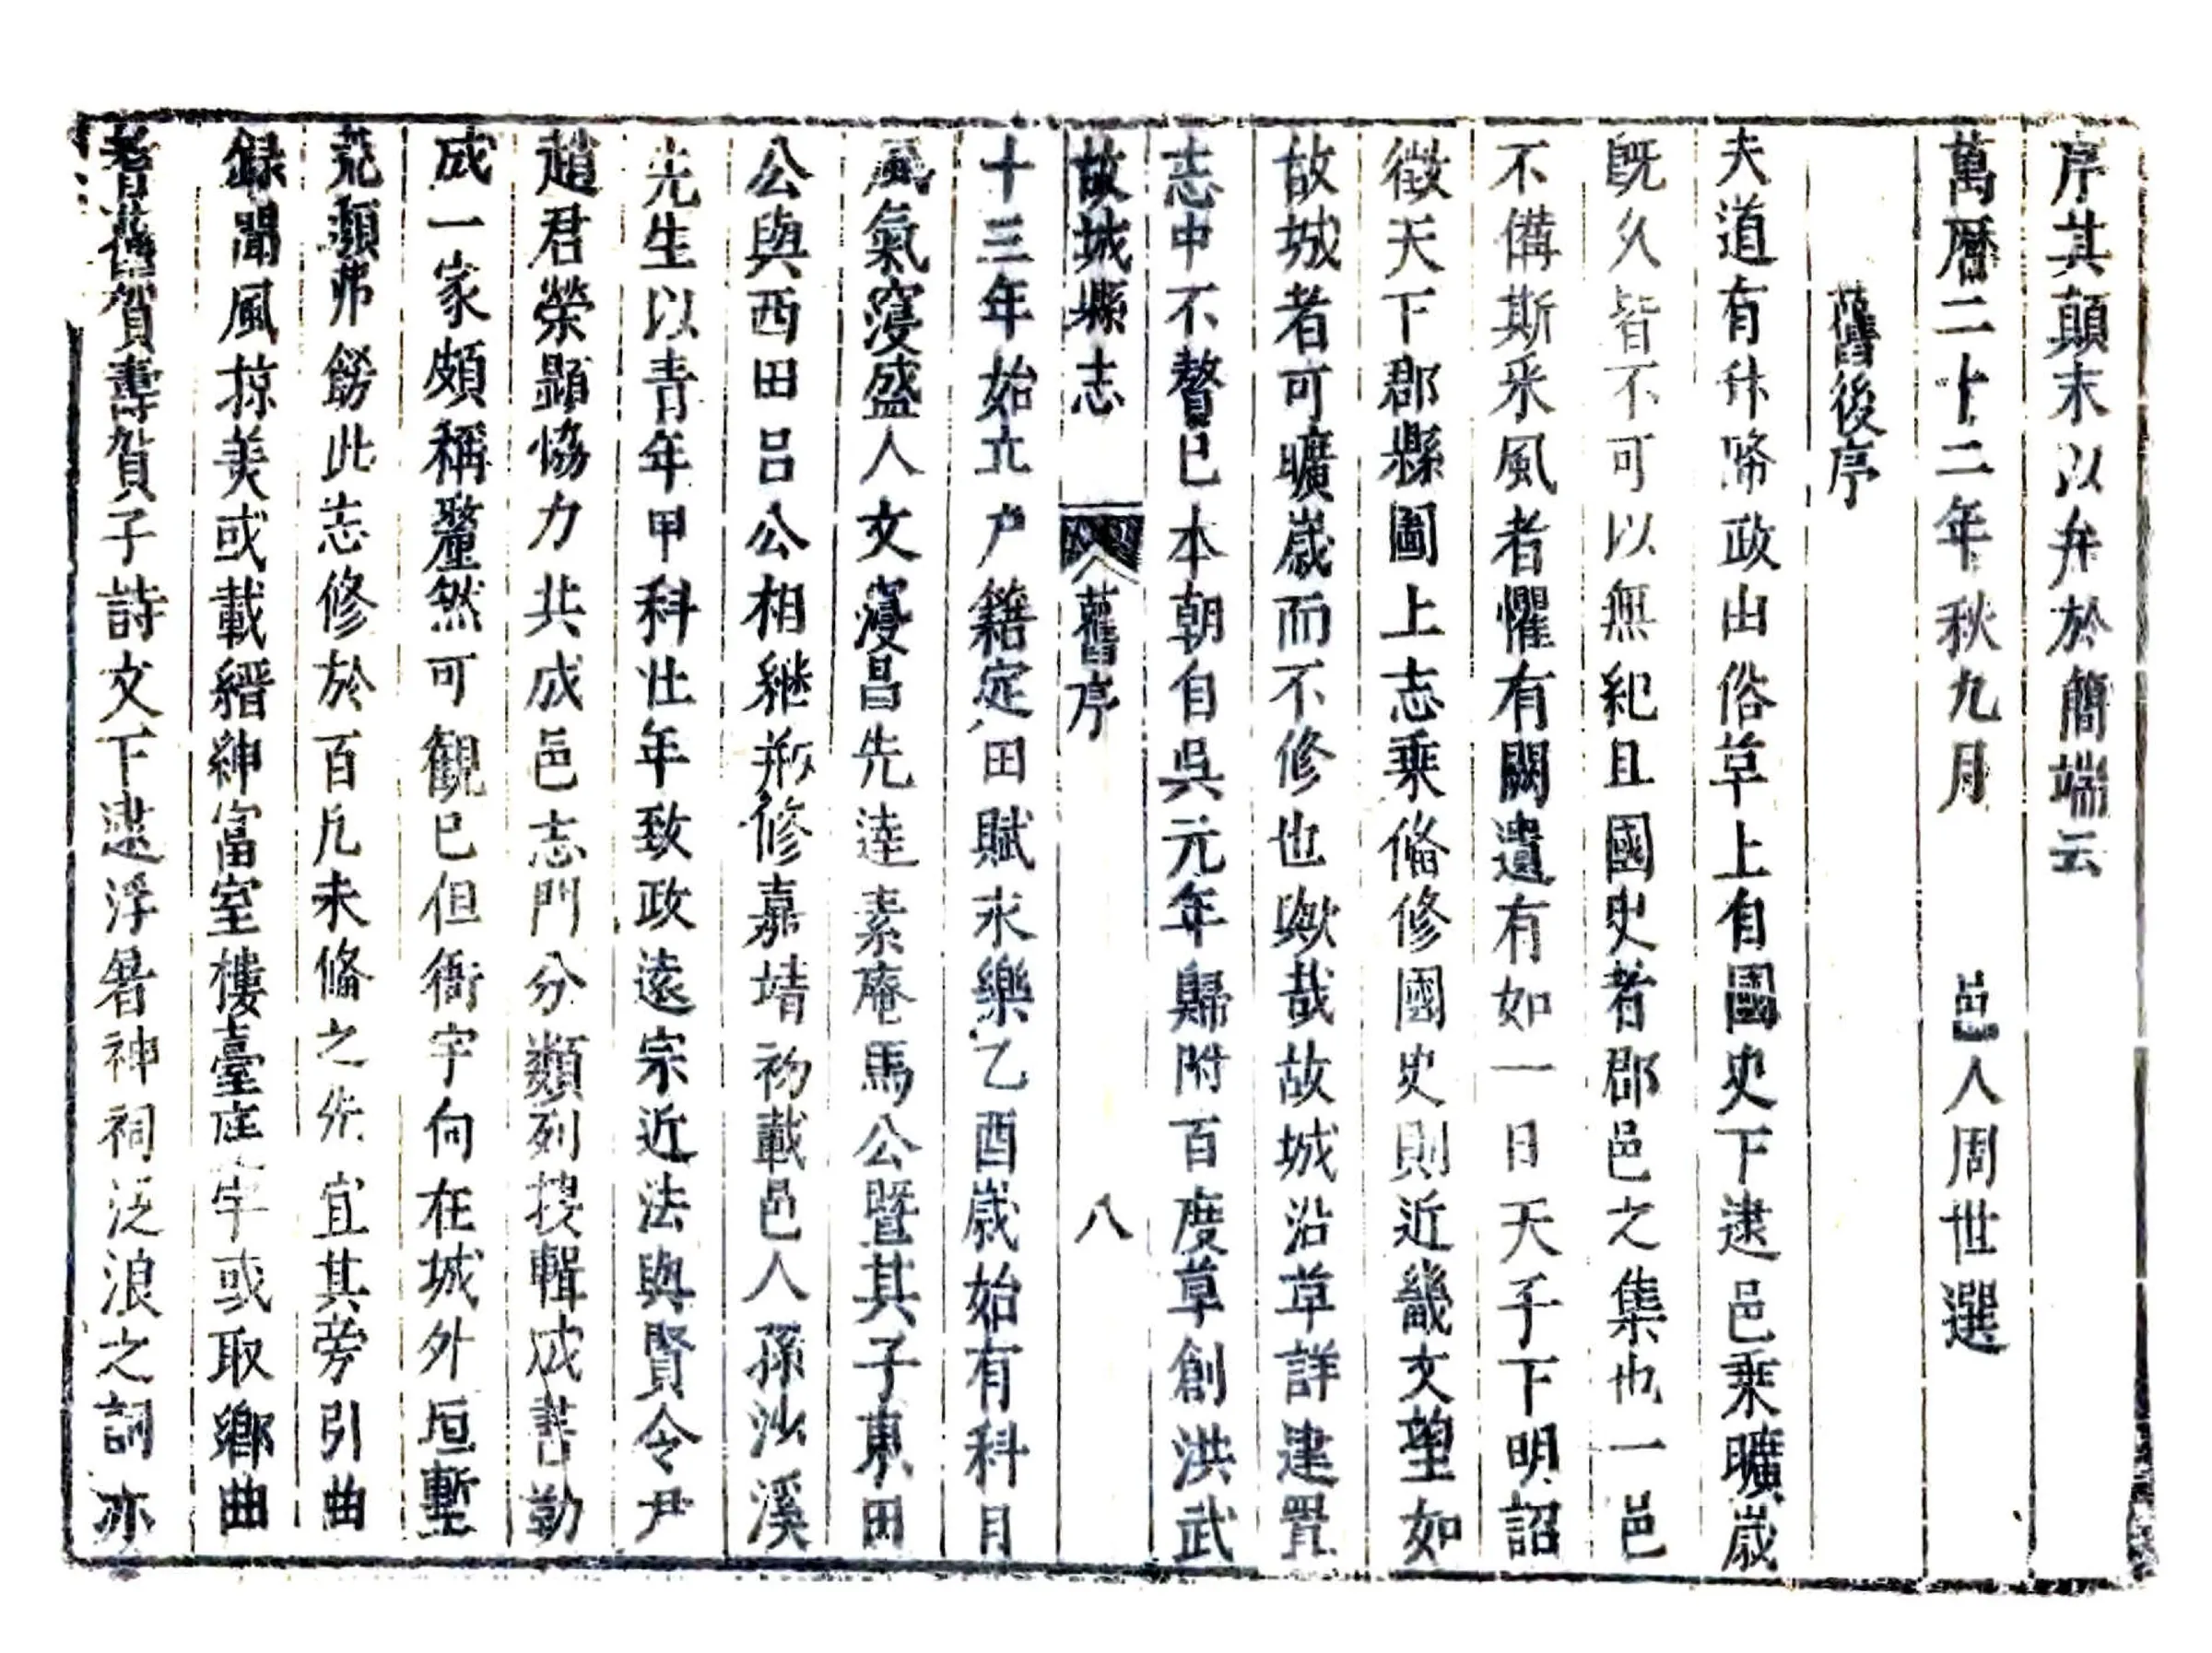 序其顛末以弁於簡端云
萬曆二十二年秋九月 邑人周世選
舊後序
夫道有汴隆政由俗草上自國史下逮邑乘曠歲
既久皆不可以無紀且國史者郡邑之集也一邑
不備斯采風者懼有闕遺有如一日天子下明詔
徵天下郡縣圖上志乘俻修國史則近畿文望如
故城者可曠歲而不修也歟哉故城沿革詳建置
志中不贅已本朝自吳元年歸附百度草創洪武
故城縣志 舊序 八
十三年始立户籍定田賦永樂乙酉歲始有科目
風氣寖盛人文寖昌先逹素庵馬公暨其子東田
公與西田呂公相継刱修嘉靖初載邑人孫沙溪
先生以青年甲科壮年致政遠宗近法與賢令尹
趙君榮顯協力共成邑志門分類列搜輯成書勒
成一家頗稱釐然可觀已但衙宇向在城外垣塹
荒頹弗飭此志修於百凡未俻之先宜其旁引曲
録聞風掠美或載縉紳富室樓臺庄宇或取鄉曲
耆舊賀壽賀子詩文下逮浮屠神祠泛浪之詞亦